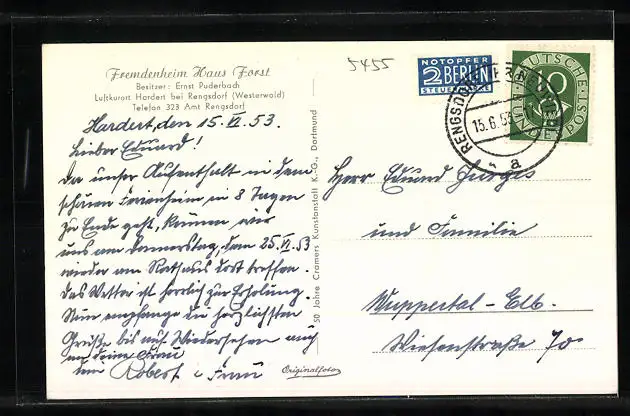 5455
Fremdenheim Haus Forst
Besitzer: Ernst Puderbach
Luftkurort Hardert bei Rengsdorf (Westerwald)
Telefon 323 Amt Rengsdorf
NOTOPFER
2 BERLIN
STEUERMARKE
DEUTSCHE
BUNDESPOST
10
RENGSDORF
15.6.53
a
Hardert, den 15. VI. 53.
Lieber Eduard!
Da unser Aufenthalt in dem
schönen Ferienheim in 8 Tagen
zu Ende geht, können wir
uns am Donnerstag, dem 25. VI. 53
wieder am Rathaus dort treffen.
Das Wetter ist herrlich zur Erholung.
Nun empfange die herzlichsten
Grüße bis auf Wiedersehen auch
an deine Frau
Robert u. Frau
50 Jahre Cramers Kunstanstalt K.-G., Dortmund
Originalfoto
Herr Eduard
und Familie
Wuppertal-Elb.
Wiesenstraße 70